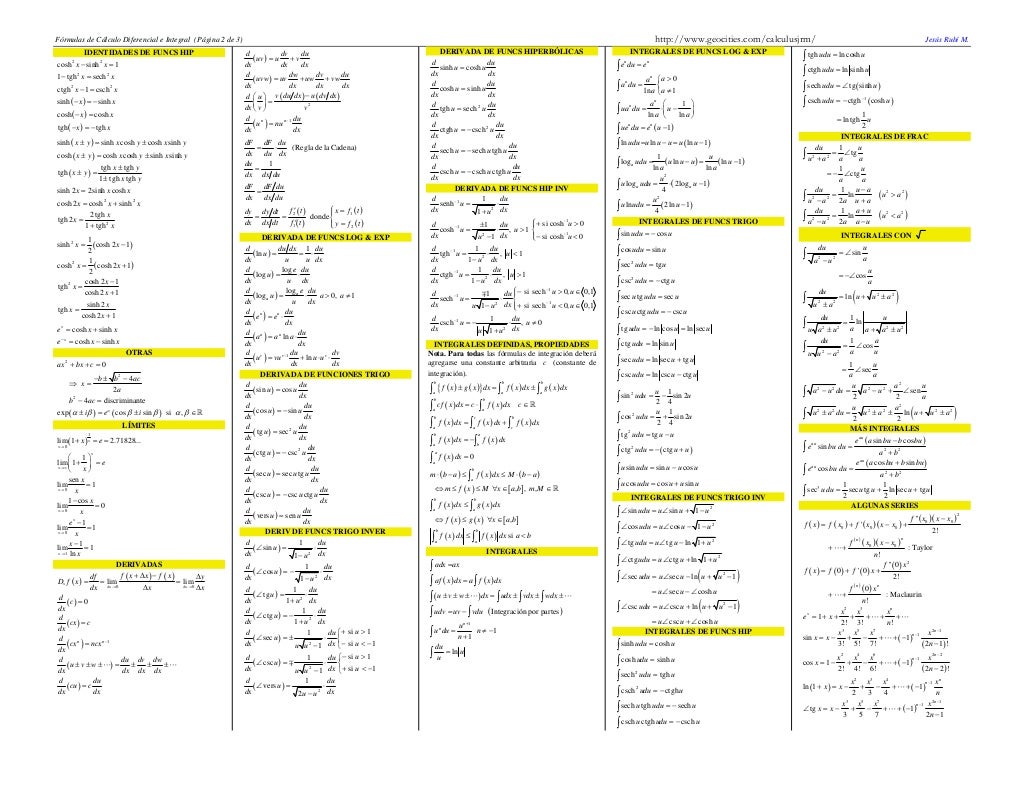 Fórmulas de Cálculo Diferencial e Integral (Página 2 de 3)
http://www.geocities.com/calculusjrm/
Jesús Rubí M.
IDENTIDADES DE FUNCS HIP
cosh² x − sinh² x = 1
1 − tgh² x = sech² x
ctgh² x − 1 = csch² x
sinh(−x) = −sinh x
cosh(−x) = cosh x
tgh(−x) = −tgh x
sinh(x ± y) = sinh x cosh y ± cosh x sinh y
cosh(x ± y) = cosh x cosh y ± sinh x sinh y
tgh(x ± y) = (tgh x ± tgh y)/(1 ± tgh x tgh y)
sinh 2x = 2 sinh x cosh x
cosh 2x = cosh² x + sinh² x
tgh 2x = 2 tgh x/(1 + tgh² x)
sinh² x = 1/2 (cosh 2x − 1)
cosh² x = 1/2 (cosh 2x + 1)
tgh² x = (cosh 2x − 1)/(cosh 2x + 1)
tgh x = sinh 2x/(cosh 2x + 1)
eˣ = cosh x + sinh x
e⁻ˣ = cosh x − sinh x
OTRAS
ax² + bx + c = 0
⇒ x = (−b ± √(b² − 4ac))/2a
b² − 4ac = discriminante
exp(α ± iβ) = e^α (cos β ± i sin β) si α, β ∈ ℝ
LÍMITES
lim x→0 (1 + x)^(1/x) = e = 2.71828...
lim x→∞ (1 + 1/x)ˣ = e
lim x→0 sen x/x = 1
lim x→0 (1 − cos x)/x = 0
lim x→0 (eˣ − 1)/x = 1
lim x→1 (x − 1)/ln x = 1
DERIVADAS
Dₓ f(x) = df/dx = lim Δx→0 (f(x + Δx) − f(x))/Δx = lim Δx→0 Δy/Δx
d/dx (c) = 0
d/dx (cx) = c
d/dx (cxⁿ) = ncxⁿ⁻¹
d/dx (u ± v ± w ± ⋯) = du/dx ± dv/dx ± dw/dx ± ⋯
d/dx (cu) = c du/dx
d/dx (uv) = u dv/dx + v du/dx
d/dx (uvw) = uv dw/dx + uw dv/dx + vw du/dx
d/dx (u/v) = (v(du/dx) − u(dv/dx))/v²
d/dx (uⁿ) = nuⁿ⁻¹ du/dx
dF/dx = dF/du · du/dx (Regla de la Cadena)
du/dx = 1/(dx/du)
dF/dx = (dF/du)/(dx/du)
dy/dx = (dy/dt)/(dx/dt) = f₂′(t)/f₁′(t) donde { x = f₁(t)
y = f₂(t)
DERIVADA DE FUNCS LOG & EXP
d/dx (ln u) = (du/dx)/u = 1/u · du/dx
d/dx (log u) = log e/u · du/dx
d/dx (logₐ u) = logₐ e/u · du/dx a > 0, a ≠ 1
d/dx (eᵘ) = eᵘ · du/dx
d/dx (aᵘ) = aᵘ ln a · du/dx
d/dx (uᵛ) = vuᵛ⁻¹ du/dx + ln u · uᵛ · dv/dx
DERIVADA DE FUNCIONES TRIGO
d/dx (sin u) = cos u du/dx
d/dx (cos u) = −sin u du/dx
d/dx (tg u) = sec² u du/dx
d/dx (ctg u) = −csc² u du/dx
d/dx (sec u) = sec u tg u du/dx
d/dx (csc u) = −csc u ctg u du/dx
d/dx (vers u) = sen u du/dx
DERIV DE FUNCS TRIGO INVER
d/dx (∠sin u) = 1/√(1 − u²) · du/dx
d/dx (∠cos u) = −1/√(1 − u²) · du/dx
d/dx (∠tg u) = 1/(1 + u²) · du/dx
d/dx (∠ctg u) = −1/(1 + u²) · du/dx
d/dx (∠sec u) = ± 1/(u√(u² − 1)) · du/dx { + si u > 1
− si u < −1
d/dx (∠csc u) = ∓ 1/(u√(u² − 1)) · du/dx { − si u > 1
+ si u < −1
d/dx (∠vers u) = 1/√(2u − u²) · du/dx
DERIVADA DE FUNCS HIPERBÓLICAS
d/dx sinh u = cosh u du/dx
d/dx cosh u = sinh u du/dx
d/dx tgh u = sech² u du/dx
d/dx ctgh u = −csch² u du/dx
d/dx sech u = −sech u tgh u du/dx
d/dx csch u = −csch u ctgh u du/dx
DERIVADA DE FUNCS HIP INV
d/dx senh⁻¹ u = 1/√(1 + u²) · du/dx
d/dx cosh⁻¹ u = ±1/√(u² − 1) · du/dx, u > 1 { + si cosh⁻¹ u > 0
− si cosh⁻¹ u < 0
d/dx tgh⁻¹ u = 1/(1 − u²) · du/dx, |u| < 1
d/dx ctgh⁻¹ u = 1/(1 − u²) · du/dx, |u| > 1
d/dx sech⁻¹ u = ∓1/(u√(1 − u²)) · du/dx { − si sech⁻¹ u > 0, u ∈ ⟨0,1⟩
+ si sech⁻¹ u < 0, u ∈ ⟨0,1⟩
d/dx csch⁻¹ u = −1/(|u|√(1 + u²)) · du/dx, u ≠ 0
INTEGRALES DEFINIDAS, PROPIEDADES
Nota. Para todas las fórmulas de integración deberá
agregarse una constante arbitraria c (constante de
integración).
∫ₐᵇ {f(x) ± g(x)} dx = ∫ₐᵇ f(x) dx ± ∫ₐᵇ g(x) dx
∫ₐᵇ cf(x) dx = c · ∫ₐᵇ f(x) dx c ∈ ℝ
∫ₐᵇ f(x) dx = ∫ₐᶜ f(x) dx + ∫_c^b f(x) dx
∫ₐᵇ f(x) dx = −∫_b^a f(x) dx
∫ₐᵃ f(x) dx = 0
m · (b − a) ≤ ∫ₐᵇ f(x) dx ≤ M · (b − a)
⇔ m ≤ f(x) ≤ M ∀x ∈ [a,b], m, M ∈ ℝ
∫ₐᵇ f(x) dx ≤ ∫ₐᵇ g(x) dx
⇔ f(x) ≤ g(x) ∀x ∈ [a,b]
|∫ₐᵇ f(x) dx| ≤ ∫ₐᵇ |f(x)| dx si a < b
INTEGRALES
∫ adx = ax
∫ af(x) dx = a ∫ f(x) dx
∫ (u ± v ± w ± ⋯) dx = ∫ udx ± ∫ vdx ± ∫ wdx ± ⋯
∫ udv = uv − ∫ vdu (Integración por partes)
∫ uⁿ du = uⁿ⁺¹/(n + 1) n ≠ −1
∫ du/u = ln|u|
INTEGRALES DE FUNCS LOG & EXP
∫ eᵘ du = eᵘ
∫ aᵘ du = aᵘ/ln a { a > 0
a ≠ 1
∫ uaᵘ du = aᵘ/ln a · (u − 1/ln a)
∫ ueᵘ du = eᵘ (u − 1)
∫ ln u du = u ln u − u = u(ln u − 1)
∫ logₐ u du = 1/ln a (u ln u − u) = u/ln a (ln u − 1)
∫ u logₐ u du = u²/4 · (2 logₐ u − 1)
∫ u ln u du = u²/4 (2 ln u − 1)
INTEGRALES DE FUNCS TRIGO
∫ sin u du = −cos u
∫ cos u du = sin u
∫ sec² u du = tg u
∫ csc² u du = −ctg u
∫ sec u tg u du = sec u
∫ csc u ctg u du = −csc u
∫ tg u du = −ln|cos u| = ln|sec u|
∫ ctg u du = ln|sin u|
∫ sec u du = ln|sec u + tg u|
∫ csc u du = ln|csc u − ctg u|
∫ sin² u du = u/2 − 1/4 sin 2u
∫ cos² u du = u/2 + 1/4 sin 2u
∫ tg² u du = tg u − u
∫ ctg² u du = −(ctg u + u)
∫ u sin u du = sin u − u cos u
∫ u cos u du = cos u + u sin u
INTEGRALES DE FUNCS TRIGO INV
∫ ∠sin u du = u∠sin u + √(1 − u²)
∫ ∠cos u du = u∠cos u − √(1 − u²)
∫ ∠tg u du = u∠tg u − ln √(1 + u²)
∫ ∠ctg u du = u∠ctg u + ln √(1 + u²)
∫ ∠sec u du = u∠sec u − ln(u + √(u² − 1))
= u∠sec u − ∠cosh u
∫ ∠csc u du = u∠csc u + ln(u + √(u² − 1))
= u∠csc u + ∠cosh u
INTEGRALES DE FUNCS HIP
∫ sinh u du = cosh u
∫ cosh u du = sinh u
∫ sech² u du = tgh u
∫ csch² u du = −ctgh u
∫ sech u tgh u du = −sech u
∫ csch u ctgh u du = −csch u
∫ tgh u du = ln cosh u
∫ ctgh u du = ln|sinh u|
∫ sech u du = ∠tg(sinh u)
∫ csch u du = −ctgh⁻¹(cosh u)
= ln tgh 1/2 u
INTEGRALES DE FRAC
∫ du/(u² + a²) = 1/a ∠tg u/a
= −1/a ∠ctg u/a
∫ du/(u² − a²) = 1/2a ln (u − a)/(u + a) (u² > a²)
∫ du/(a² − u²) = 1/2a ln (a + u)/(a − u) (u² < a²)
INTEGRALES CON √
∫ du/√(a² − u²) = ∠sin u/a
= −∠cos u/a
∫ du/√(u² ± a²) = ln(u + √(u² ± a²))
∫ du/(u√(a² ± u²)) = 1/a ln|u/(a + √(a² ± u²))|
∫ du/(u√(u² − a²)) = 1/a ∠cos a/u
= 1/a ∠sec u/a
∫ √(a² − u²) du = u/2 √(a² − u²) + a²/2 ∠sen u/a
∫ √(u² ± a²) du = u/2 √(u² ± a²) ± a²/2 ln(u + √(u² ± a²))
MÁS INTEGRALES
∫ eᵃᵘ sin bu du = eᵃᵘ (a sin bu − b cos bu)/(a² + b²)
∫ eᵃᵘ cos bu du = eᵃᵘ (a cos bu + b sin bu)/(a² + b²)
∫ sec³ u du = 1/2 sec u tg u + 1/2 ln|sec u + tg u|
ALGUNAS SERIES
f(x) = f(x₀) + f′(x₀)(x − x₀) + f″(x₀)(x − x₀)²/2!
+ ⋯ + f⁽ⁿ⁾(x₀)(x − x₀)ⁿ/n! : Taylor
f(x) = f(0) + f′(0)x + f″(0)x²/2!
+ ⋯ + f⁽ⁿ⁾(0)xⁿ/n! : Maclaurin
eˣ = 1 + x + x²/2! + x³/3! + ⋯ + xⁿ/n! + ⋯
sin x = x − x³/3! + x⁵/5! − x⁷/7! + ⋯ + (−1)ⁿ⁻¹ x²ⁿ⁻¹/(2n − 1)!
cos x = 1 − x²/2! + x⁴/4! − x⁶/6! + ⋯ + (−1)ⁿ⁻¹ x²ⁿ⁻²/(2n − 2)!
ln(1 + x) = x − x²/2 + x³/3 − x⁴/4 + ⋯ + (−1)ⁿ⁻¹ xⁿ/n
∠tg x = x − x³/3 + x⁵/5 − x⁷/7 + ⋯ + (−1)ⁿ⁻¹ x²ⁿ⁻¹/(2n − 1)